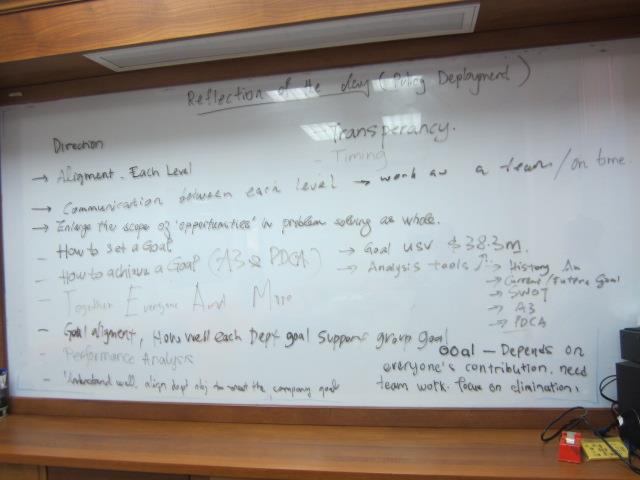 Reflection of the day (Policy Deployment)
Direction
Transperancy.
- Timing
→ Aligment - Each Level
→ Communication between each level → work as a team / on time.
→ Enlarge the scope of 'opportunities' in problem solving as whole.
- How to set a Goal
- How to achieve a Goal (A3 & PDCA)
→ Goal USV $38.3m
→ Analysis tools
→ History An
→ Current/Future Goal
→ SWOT
→ A3
→ PDCA
- Together Everyone And More
- Goal aligment, How well each Dept goal support group goal
- Performance Analysis
- Understand well, align dept obj to meet the company goal
Goal - Depends on
everyone's contribution, need
team work. focus on elimination,